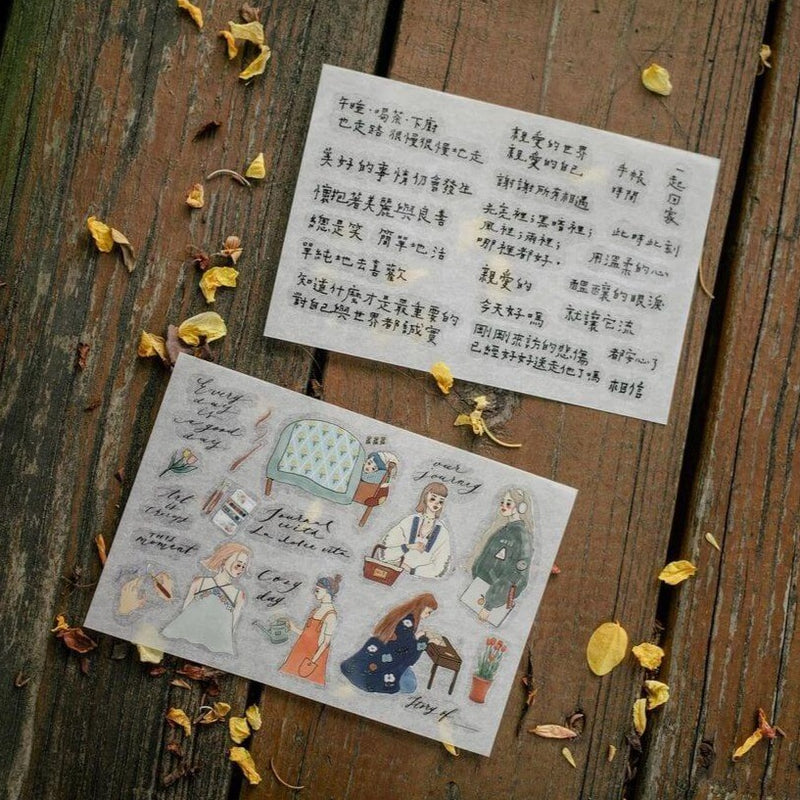 午睡·喝茶·下廚
也走路 很慢很慢地走
美好的事情仍會發生
懷抱著美麗與良善
總是笑 簡單地活
單純地去喜歡
知道什麼才是最重要的
對自己與世界都誠實
親愛的世界
親愛的自己
謝謝所有相遇
光亮裡;黑暗裡;
風裡;雨裡;
哪裡都好.
親愛的
今天好嗎
剛剛來訪的悲傷
已經好好送走他了嗎
手帳
時間
一起回家
此時此刻
用溫柔的心
醞釀的眼淚
就讓它流
都安心了
相信
Every
day
is
a good
day
our
journey
Journal
with
La dolce vita
this
moment
Cozy
day
Story of